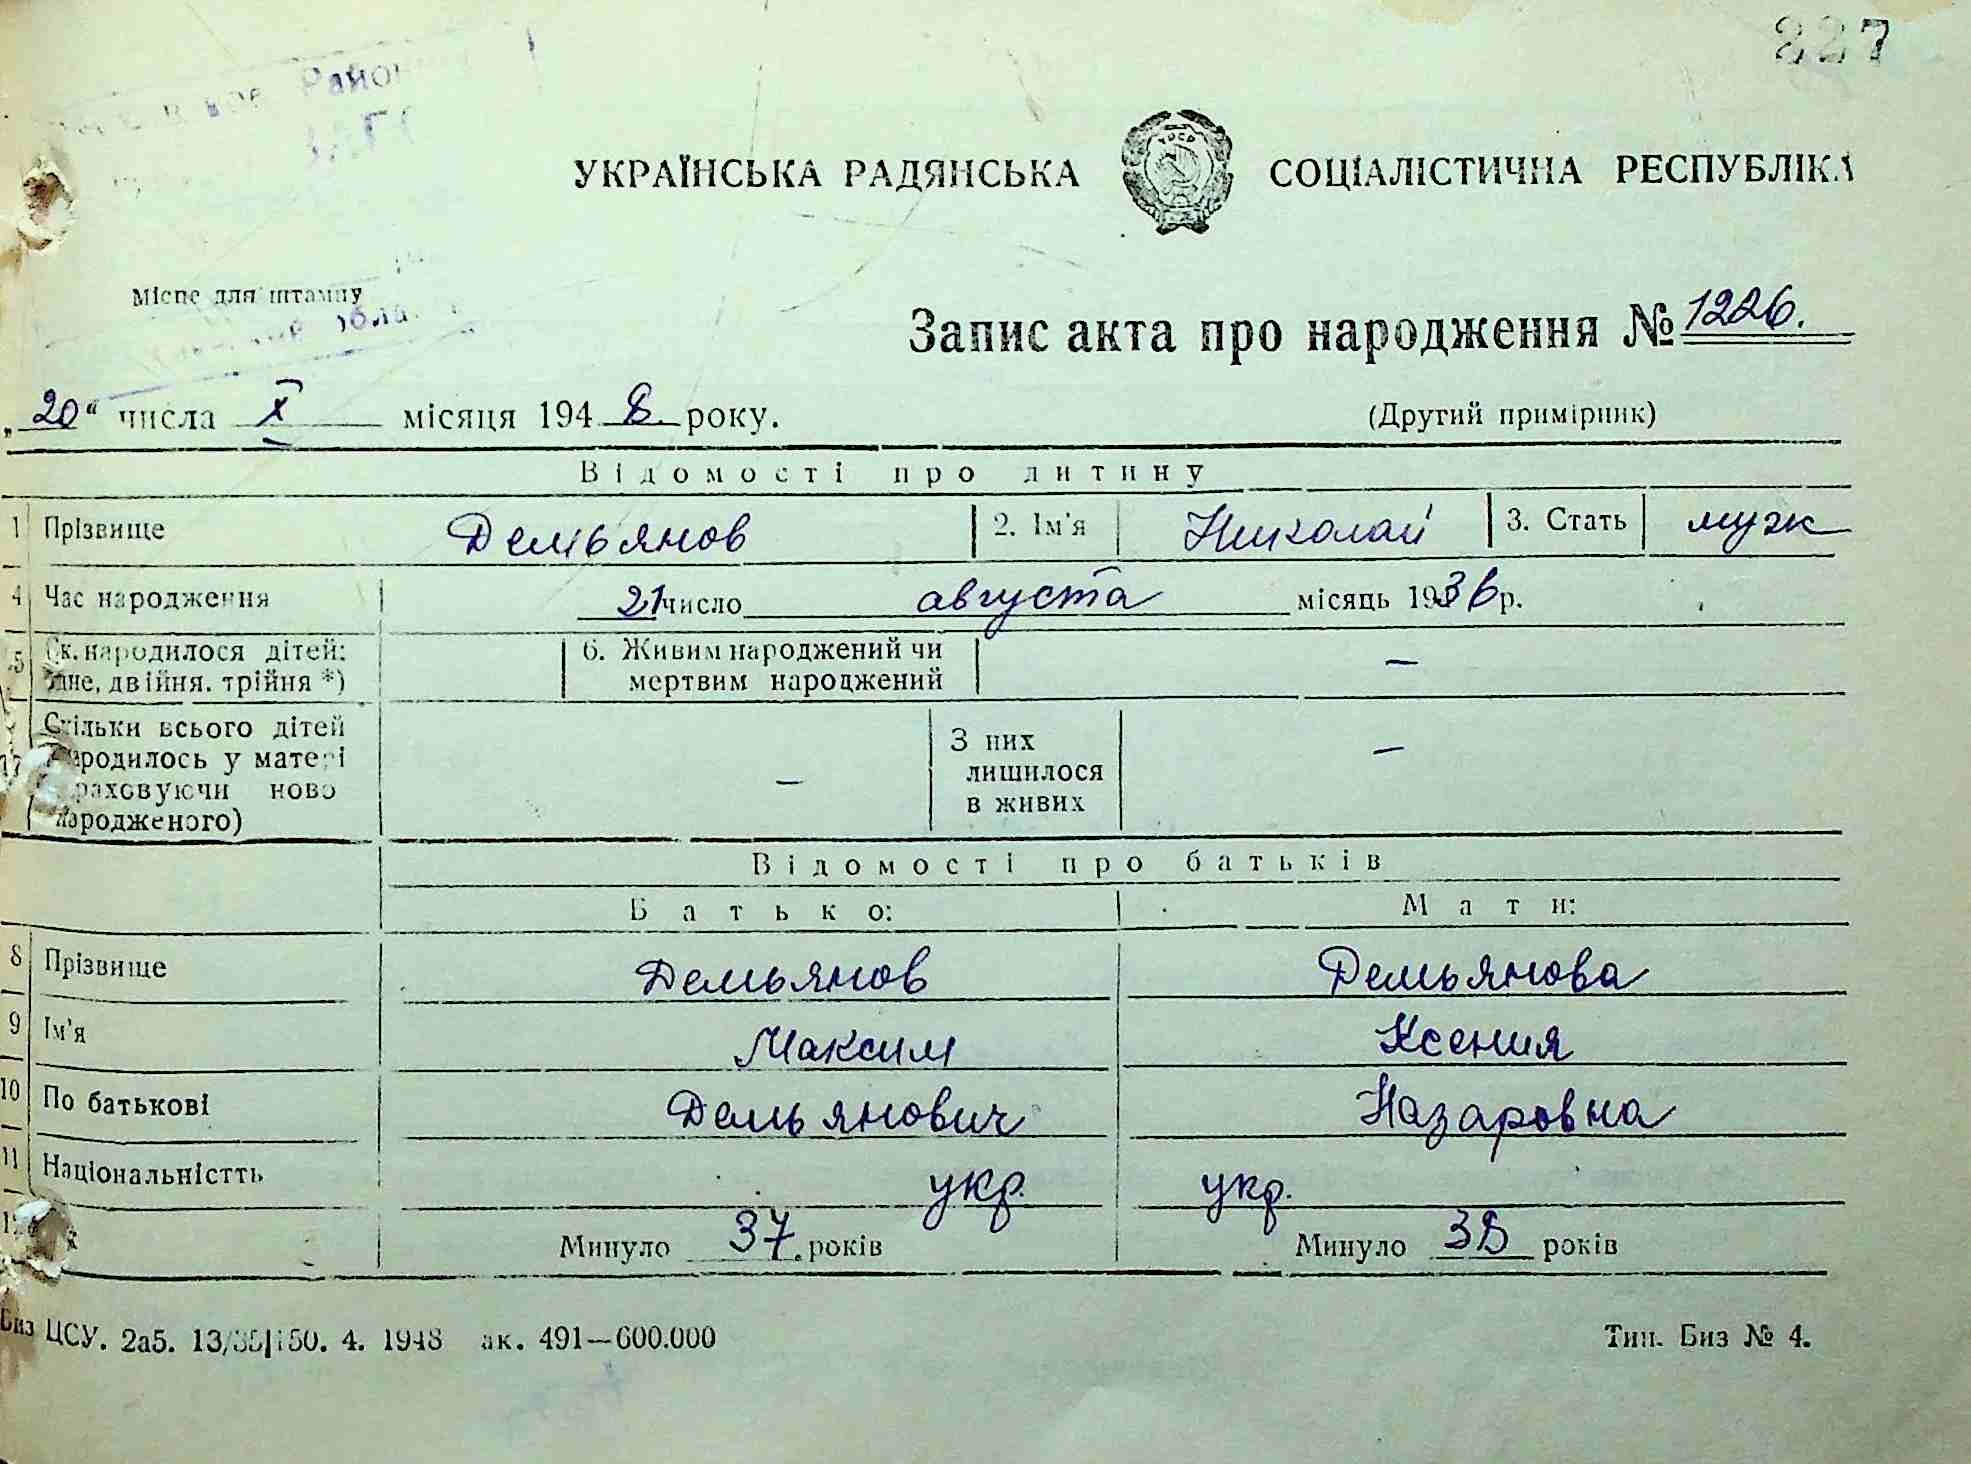 227
Район
ЗАГС
УКРАЇНСЬКА РАДЯНСЬКА СОЦІАЛІСТИЧНА РЕСПУБЛІКА
УРСР
Місце для штампу
Запис акта про народження № 1226.
„20“ числа X місяця 1948 року.
(Другий примірник)
Відомості про дитину
1 Прізвище Демьянов 2. Ім'я Николай 3. Стать муж
4 Час народження 21 число августа місяць 1936 р.
5 Ск. народилося дітей: 6. Живим народжений чи —
одне, двійня, трійня *) мертвим народжений
Скільки всього дітей З них —
народилось у матері лишилося
враховуючи ново — в живих
народженого)
Відомості про батьків
Батько: Мати:
8 Прізвище Демьянов Демьянова
9 Ім'я Максим Ксения
10 По батькові Демьянович Назаровна
11 Національністть укр. укр.
Минуло 37 років Минуло 38 років
Биз ЦСУ. 2а5. 13/35|150. 4. 1948 ак. 491—600.000 Тип. Биз № 4.